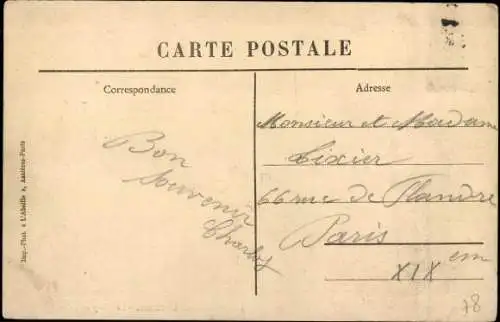 CARTE POSTALE
Correspondance
Adresse
Bon
Souvenir
Charles
Monsieur et Madame
Tixier
66 rue de Flandre
Paris
XIX em
78
Imp.-Phot. à L'Abeille, Asnières-Paris